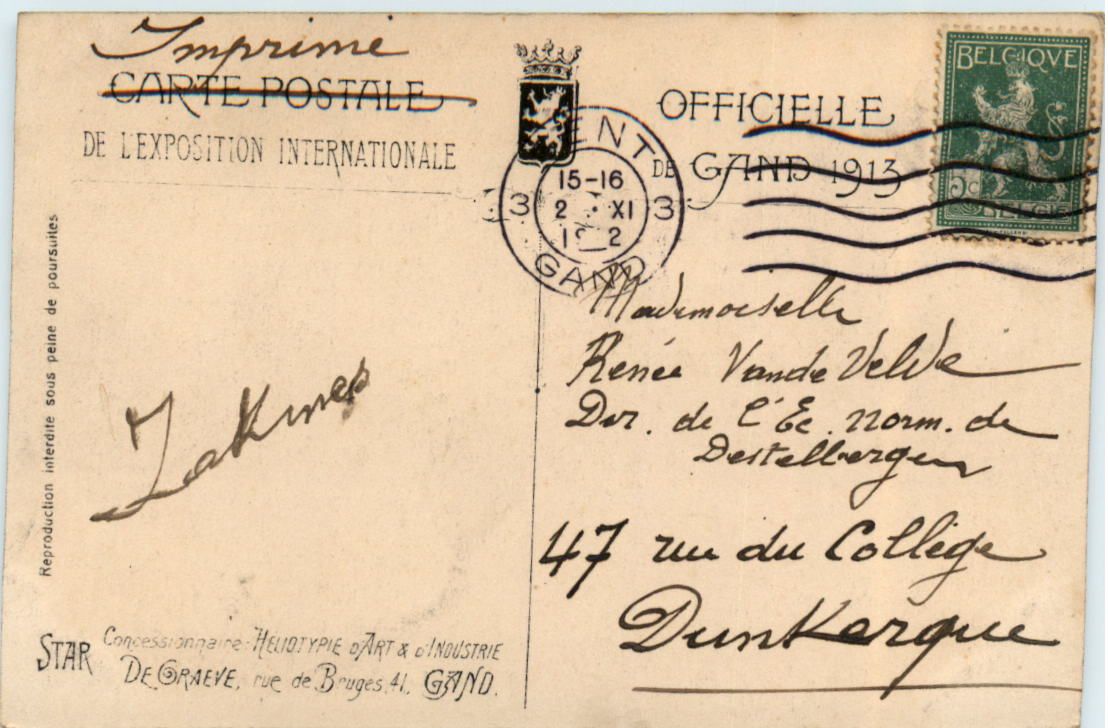 Imprimé
CARTE POSTALE OFFICIELLE
DE L'EXPOSITION INTERNATIONALE DE GAND 1913
BELGIQUE
5c
BELGIË
GENT
15-16
3 2 XI 3
GAND
Reproduction interdite sous peine de poursuites
Mademoiselle
Renée Vande Velde
Dir. de l'Ec. norm. de
Destelbergen
47 rue du Collège
Dunkerque
STAR Concessionnaire: HELIOTYPIE D'ART & D'INDUSTRIE
DE GRAEVE, rue de Bruges, 41, GAND.